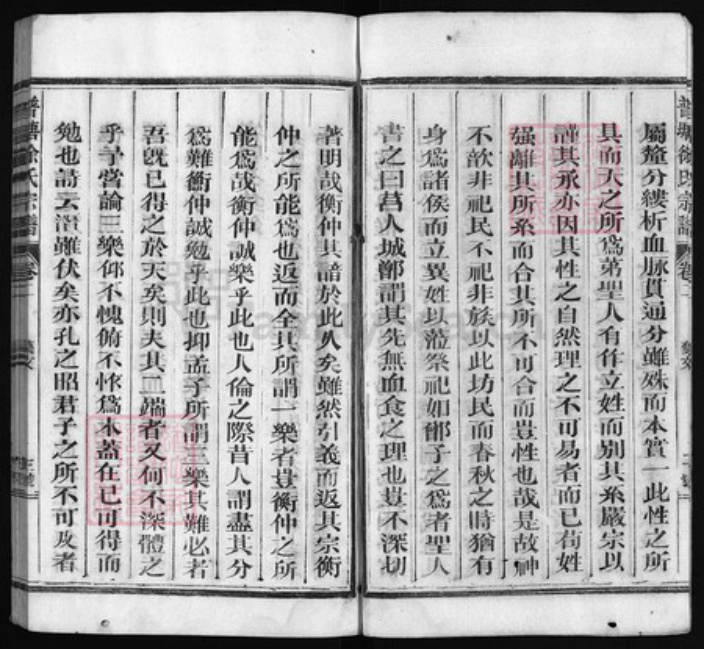 屬釐分縷析血脉貫通分雖殊而本實一此性之所
具而天之所爲第聖人有作立姓而別其系嚴宗以
謹其承亦因其性之自然理之不可易者而已苟姓
强離其所系而合其所不可合而豈性也哉是故神
不歆非祀民不祀非族以此坊民而春秋之時猶有
身爲諸侯而立異姓以蒞祭祀如鄫子之爲者聖人
書之曰莒人城鄫謂其先無血食之理也豈不深切
著明哉衡仲其諳於此久矣雖然引義而返其宗衡
仲之所能爲也返而全其所謂一樂者豈衡仲之所
能爲哉衡仲誠樂乎此也人倫之際昔人謂盡其分
爲難衡仲誠勉乎此也抑孟子所謂三樂其難必者
吾旣已得之於天矣則夫其二端者又何不深體之
乎予嘗論三樂仰不愧俯不怍爲本蓋在已可得而
勉也詩云潛雖伏矣亦孔之昭君子之所不可及者
普塘徐氏宗譜 卷二